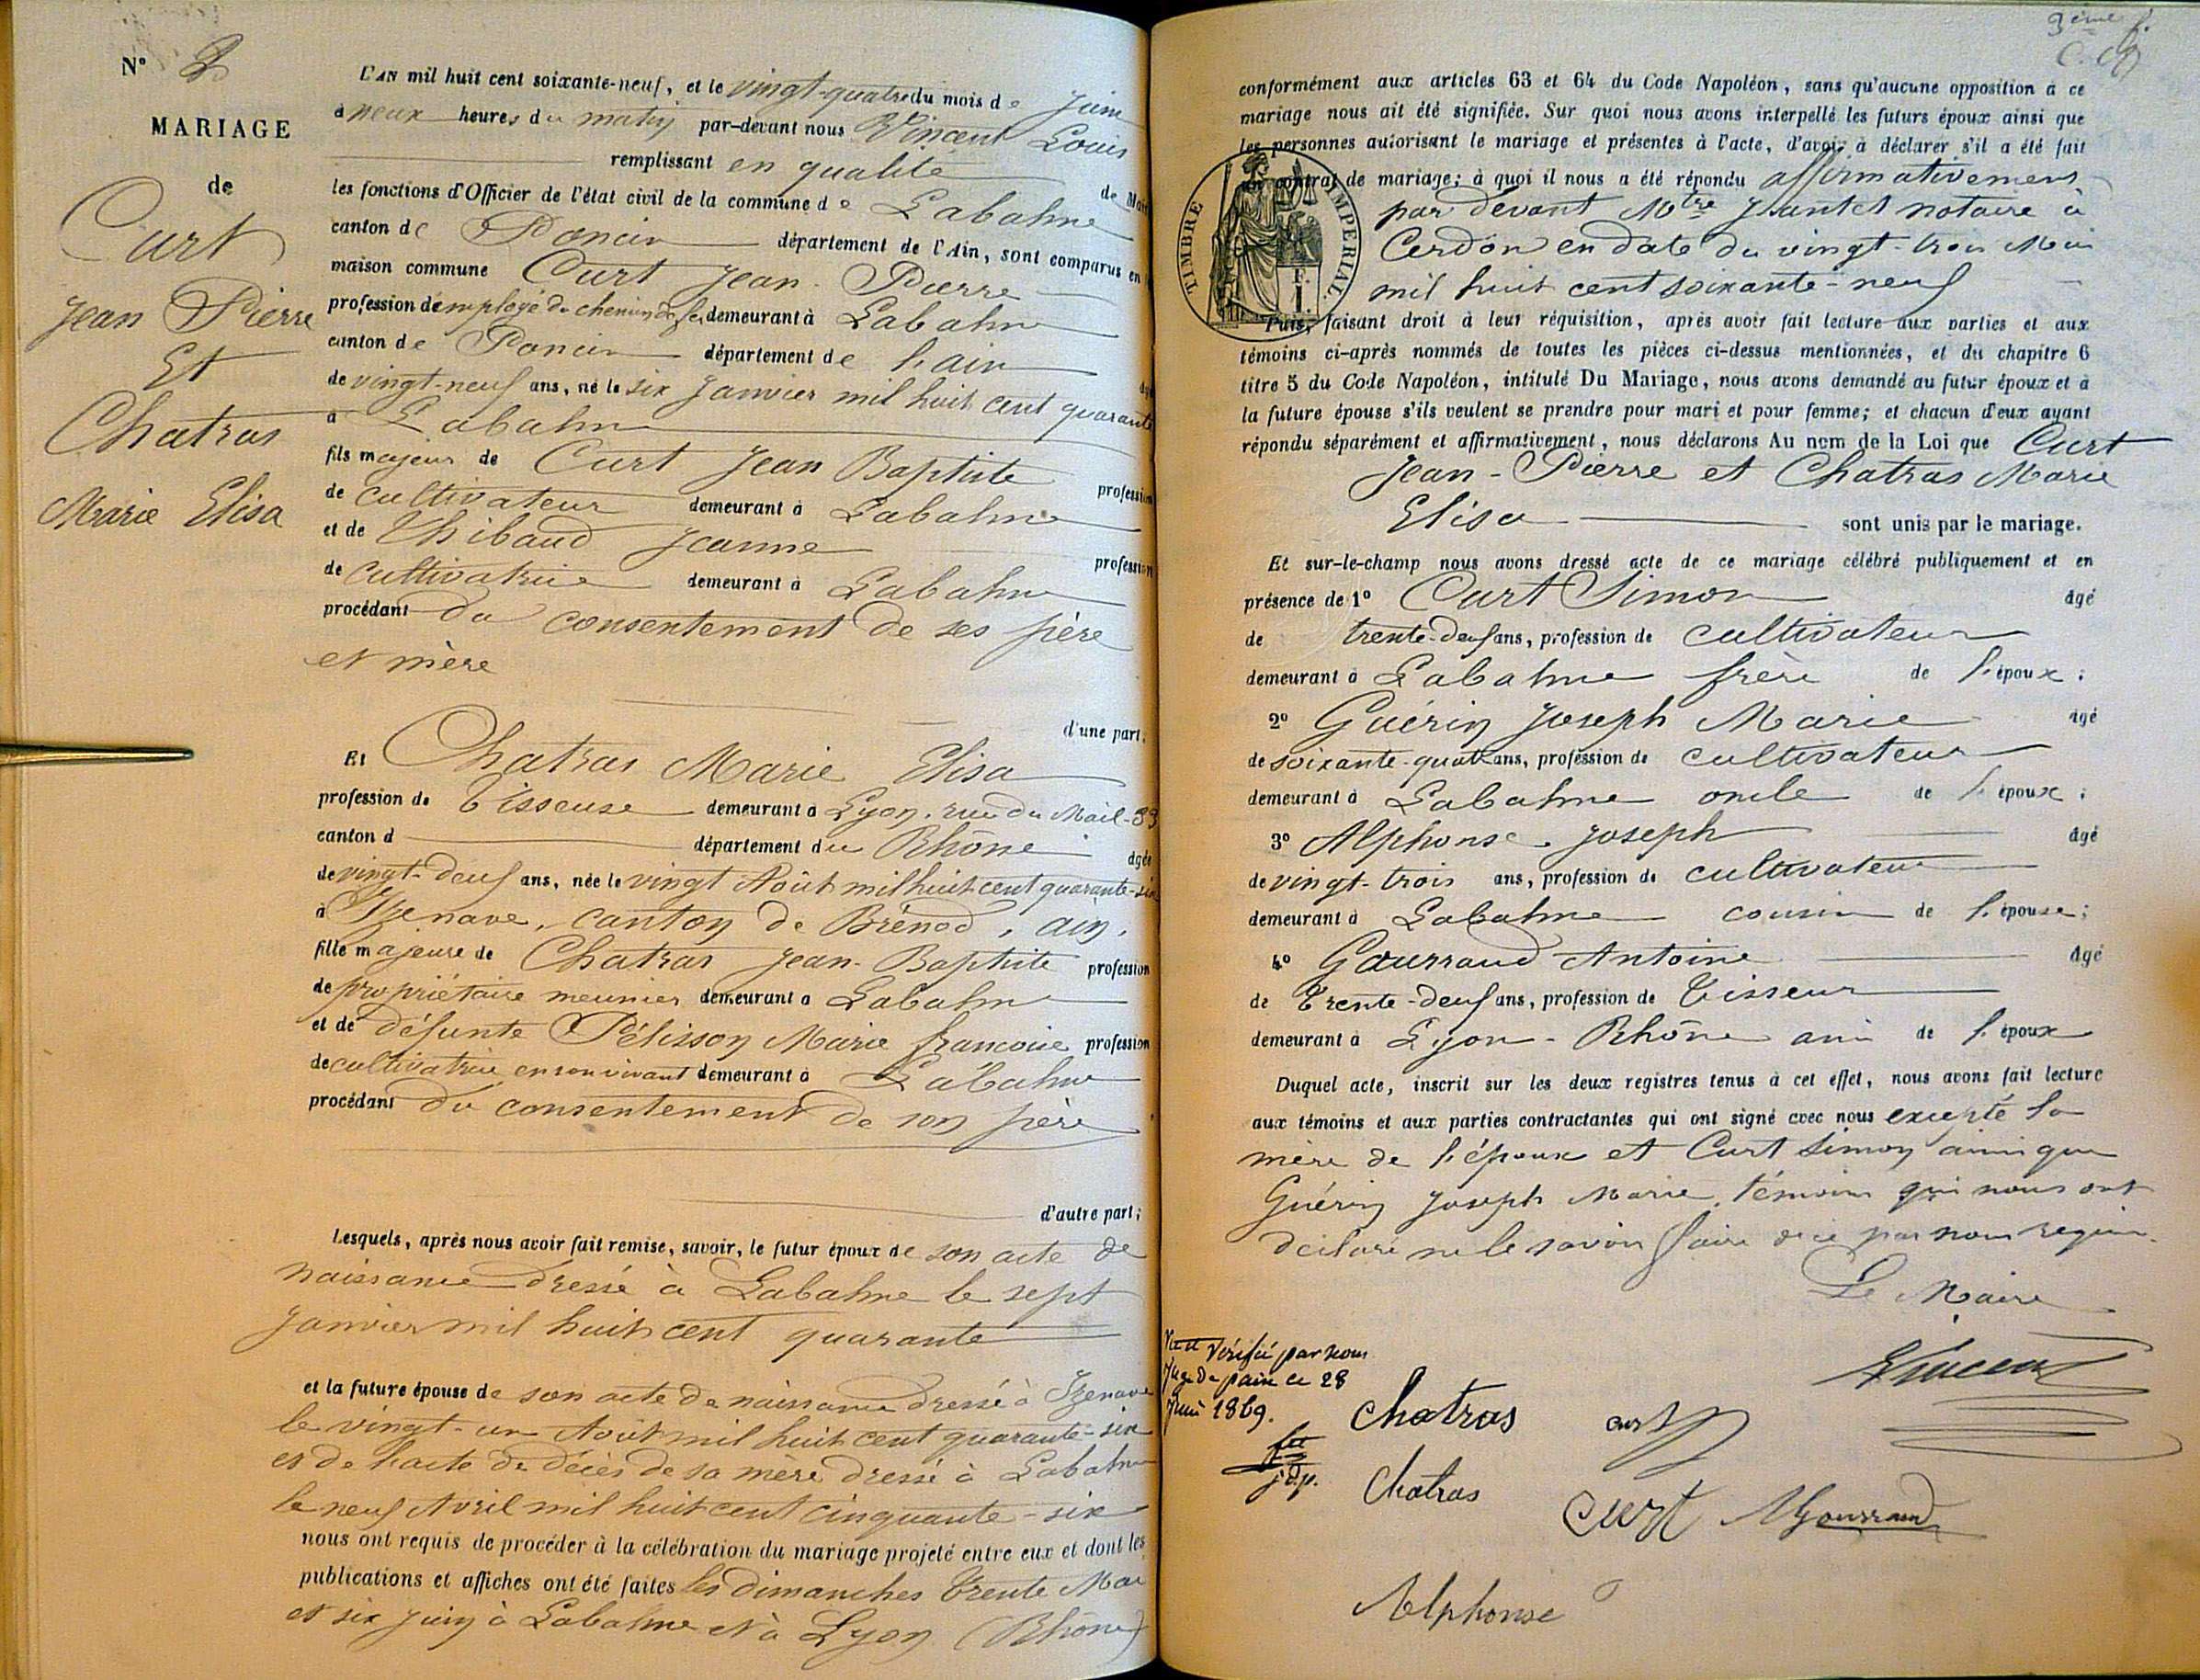 N° 2
MARIAGE
de
Curt
Jean Pierre
Et
Chatras
Marie Elisa
L'AN mil huit cent soixante-neuf, et le vingt-quatre du mois de Juin
à neuf heures du matin par-devant nous Vincent Louis
remplissant en qualité de Mai
les fonctions d'Officier de l'état civil de la commune de Labalme
canton de Poncin département de l'Ain, sont comparus en
maison commune Curt Jean-Pierre
profession d'employé du chemin de fer demeurant à Labalme
canton de Poncin département de l'ain
de vingt-neuf ans, né le six Janvier mil huit cent quarante
à Labalme
fils majeur de Curt Jean Baptiste profession
de cultivateur demeurant à Labalme
et de Thibaud Jeanne profession
de cultivatrice demeurant à Labalme
procédant du consentement de ses père
et mère
d'une part;
Et Chatras Marie Elisa
profession de Tisseuse demeurant à Lyon, rue du Mail-33
canton d département du Rhône âgée
de vingt-deux ans, née le vingt Août mil huit cent quarante-six
à Izenave, canton de Brénod, ain,
fille majeure de Chatras Jean-Baptiste profession
de propriétaire meunier demeurant à Labalme
et de défunte Pélisson Marie francoise profession
de cultivatrice en son vivant demeurant à Labalme
procédant du consentement de son père
d'autre part;
Lesquels, après nous avoir fait remise, savoir, le futur époux de son acte de
naissance dressé à Labalme le sept
Janvier mil huit cent quarante
et la future épouse de son acte de naissance dressé à Izenave
le vingt-un Août mil huit cent quarante-six
et de l'acte de décès de sa mère dressé à Labalme
le neuf Avril mil huit cent cinquante-six
nous ont requis de procéder à la célébration du mariage projeté entre eux et dont les
publications et affiches ont été faites les dimanches trente Mai
et six Juin à Labalme et à Lyon (Rhône)
3ème f.
conformément aux articles 63 et 64 du Code Napoléon, sans qu'aucune opposition à ce
mariage nous ait été signifiée. Sur quoi nous avons interpellé les futurs époux ainsi que
les personnes autorisant le mariage et présentes à l'acte, d'avoir à déclarer s'il a été fait
un contrat de mariage; à quoi il nous a été répondu affirmativement
par devant Mtre notaire à
Cerdon en date du vingt-trois Mai
mil huit cent soixante-neuf
TIMBRE IMPERIAL.
Puis, faisant droit à leur réquisition, après avoir fait lecture aux parties et aux
témoins ci-après nommés de toutes les pièces ci-dessus mentionnées, et du chapitre 6
titre 5 du Code Napoléon, intitulé Du Mariage, nous avons demandé au futur époux et à
la future épouse s'ils veulent se prendre pour mari et pour femme; et chacun d'eux ayant
répondu séparément et affirmativement, nous déclarons Au nom de la Loi que Curt
Jean-Pierre et Chatras Marie
Elisa sont unis par le mariage.
Et sur-le-champ nous avons dressé acte de ce mariage célébré publiquement et en
présence de 1° Curt Simon âgé
de trente-deux ans, profession de cultivateur
demeurant à Labalme frère de l'époux;
2° Guérin Joseph Marie âgé
de soixante-quatre ans, profession de cultivateur
demeurant à Labalme oncle de l'époux;
3° Alphonse Joseph âgé
de vingt-trois ans, profession de cultivateur
demeurant à Labalme cousin de l'épouse;
4° Gourraud Antoine âgé
de Trente-deux ans, profession de Tisseur
demeurant à Lyon-Rhône ami de l'époux
Duquel acte, inscrit sur les deux registres tenus à cet effet, nous avons fait lecture
aux témoins et aux parties contractantes qui ont signé avec nous excepté la
mère de l'époux et Curt Simon ainsi que
Guérin Joseph Marie, témoins qui nous ont
déclaré ne le savoir faire de ce par nous requis.
Le Maire
Vincent
Vu et Vérifié par nous
Juge de paix ce 28
Juin 1869.
j.d.p.
Chatras curt
Chatras Curt AGourraud
Alphonse